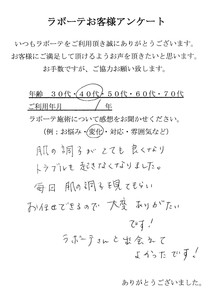 ラポーテお客様アンケート
いつもラポーテをご利用頂き誠にありがとうございます。
お客様にご満足して頂けるようお声を頂きたいと思います。
お手数ですが、ご協力お願い致します。
年齢 30代・40代・50代・60代・70代
ご利用年月 1年
ラポーテ施術について感想をお聞かせください。
(例:お悩み・変化・対応・雰囲気など)
肌の調子がとても良くなり
トラブルも起きなくなりました。
毎日 肌の調子を見てもらい
お任せできるので 大変 ありがたい
です!
ラポーテさんと出会えて
よかったです!
ありがとうございました。